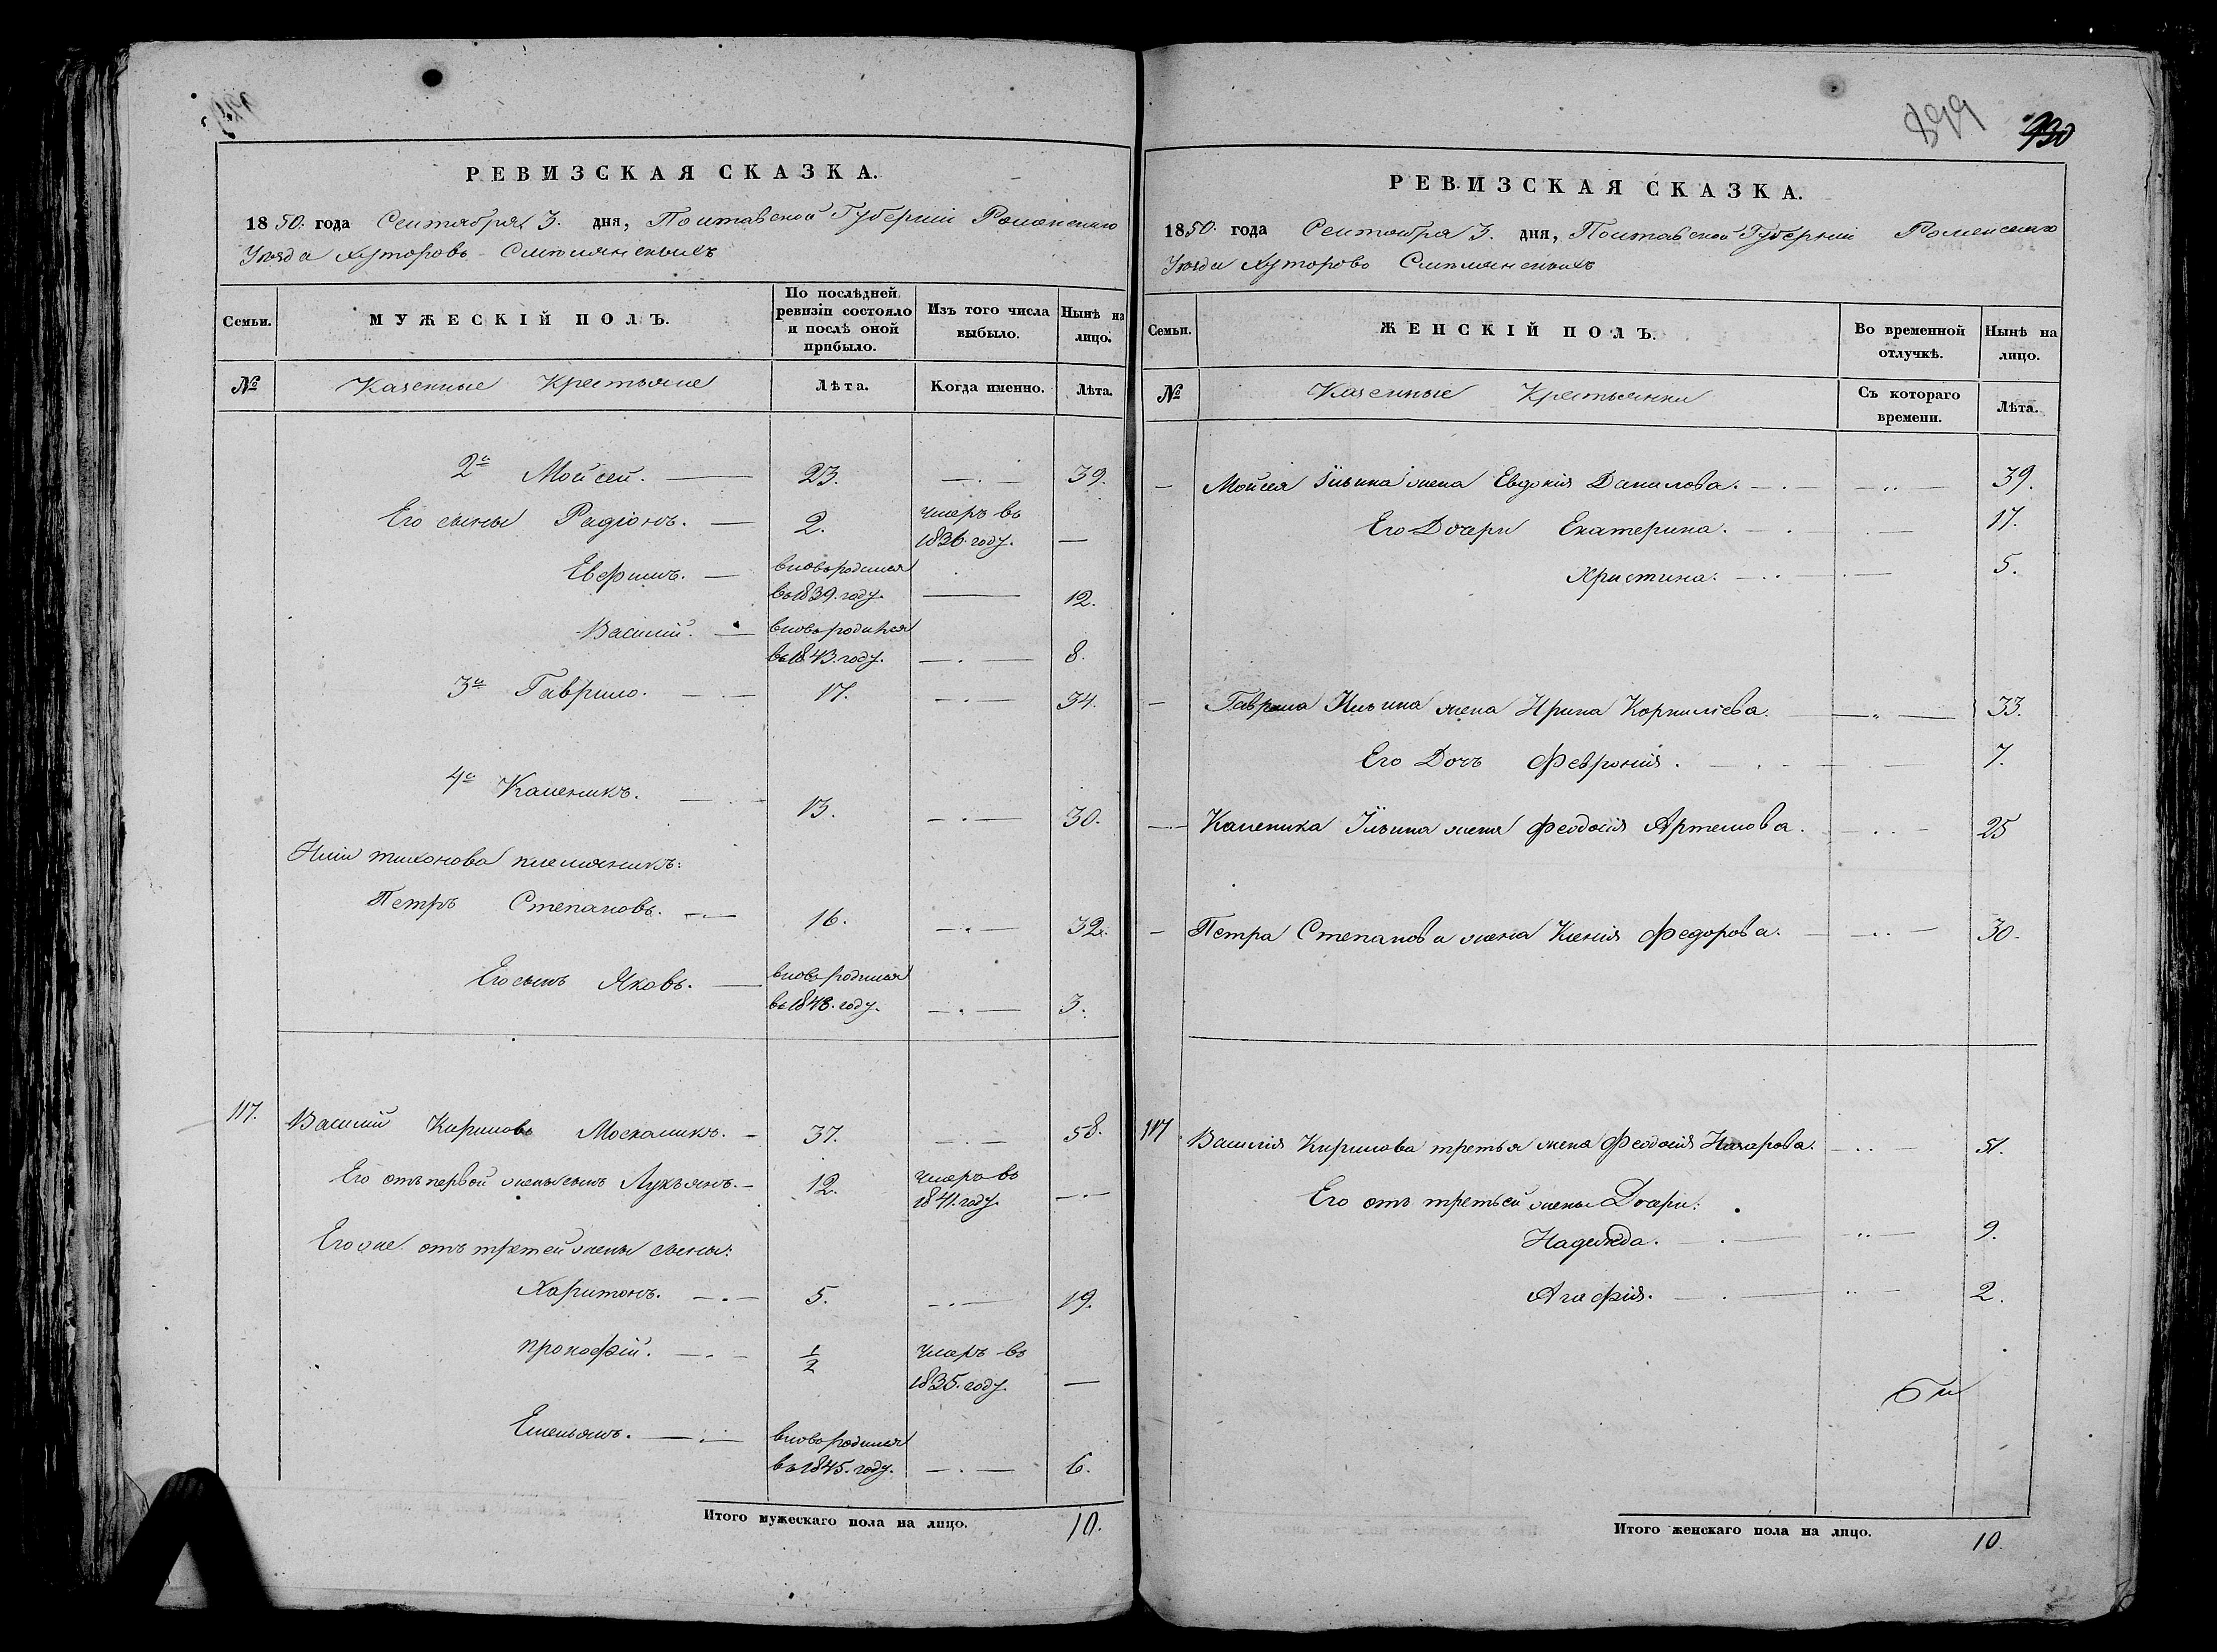 РЕВИЗСКАЯ СКАЗКА.
1850. года Сентября 3. дня, Полтавской Губерніи Роменского
Уезда Хуторовъ Смѣлянскихъ
Семьи.
МУЖЕСКІЙ ПОЛЪ.
По послѣдней ревизіи состояло и послѣ оной прибыло.
Изъ того числа выбыло.
Нынѣ на лицо.
№ Казенные Крестьяне Лѣта. Когда именно. Лѣта.
2й Мойсей. 23. 39.
Его сыны Радіонъ. 2. умеръ въ 1836. году. —
Ефимъ. вновь родился въ 1839. году. — 12.
Василій. вновь родился въ 1843. году. — 8.
3й Гаврило. 17. 34.
4й Каленикъ. 13. 30.
Иліи Тихонова племяникъ:
Петръ Степановъ. 16. 32.
Его сынъ Яковъ. вновь родился въ 1848. году. 3.
117. Василій Кириловъ Москаликъ. 37. 58.
Его отъ первой жены сынъ Лукъянъ. 12. умеръ въ 1841. году. —
Его же отъ третей жены сыны:
Харитонъ. 5. 19.
Прокофій. ½ умеръ въ 1835. году. —
Емельянъ. вновь родился въ 1845. году. 6.
Итого мужескаго пола на лицо. 10.
899 930
РЕВИЗСКАЯ СКАЗКА.
1850. года Сентября 3. дня, Полтавской Губерніи Роменского
Уезда Хуторовъ Смѣлянскихъ
Семьи.
ЖЕНСКІЙ ПОЛЪ.
Во временной отлучкѣ.
Нынѣ на лицо.
№ Казенные Крестьянки Съ котораго времени. Лѣта.
Мойсея Ильина жена Евдокія Данилова. 39.
Его Дочери Екатерина. 17.
Христина. 5.
Гаврила Ильина жена Ирина Корнилієва. 33.
Его Дочь Февронія. 7.
Каленика Ильина жена Феодосія Артемова. 25
Петра Степанова жена Ксенія Федорова. 30.
117 Василія Кирилова третья жена Феодосія Назарова. 51.
Его отъ третьей жены Дочери:
Надежда. 9.
Агафія. 2.
Итого женскаго пола на лицо. 10.